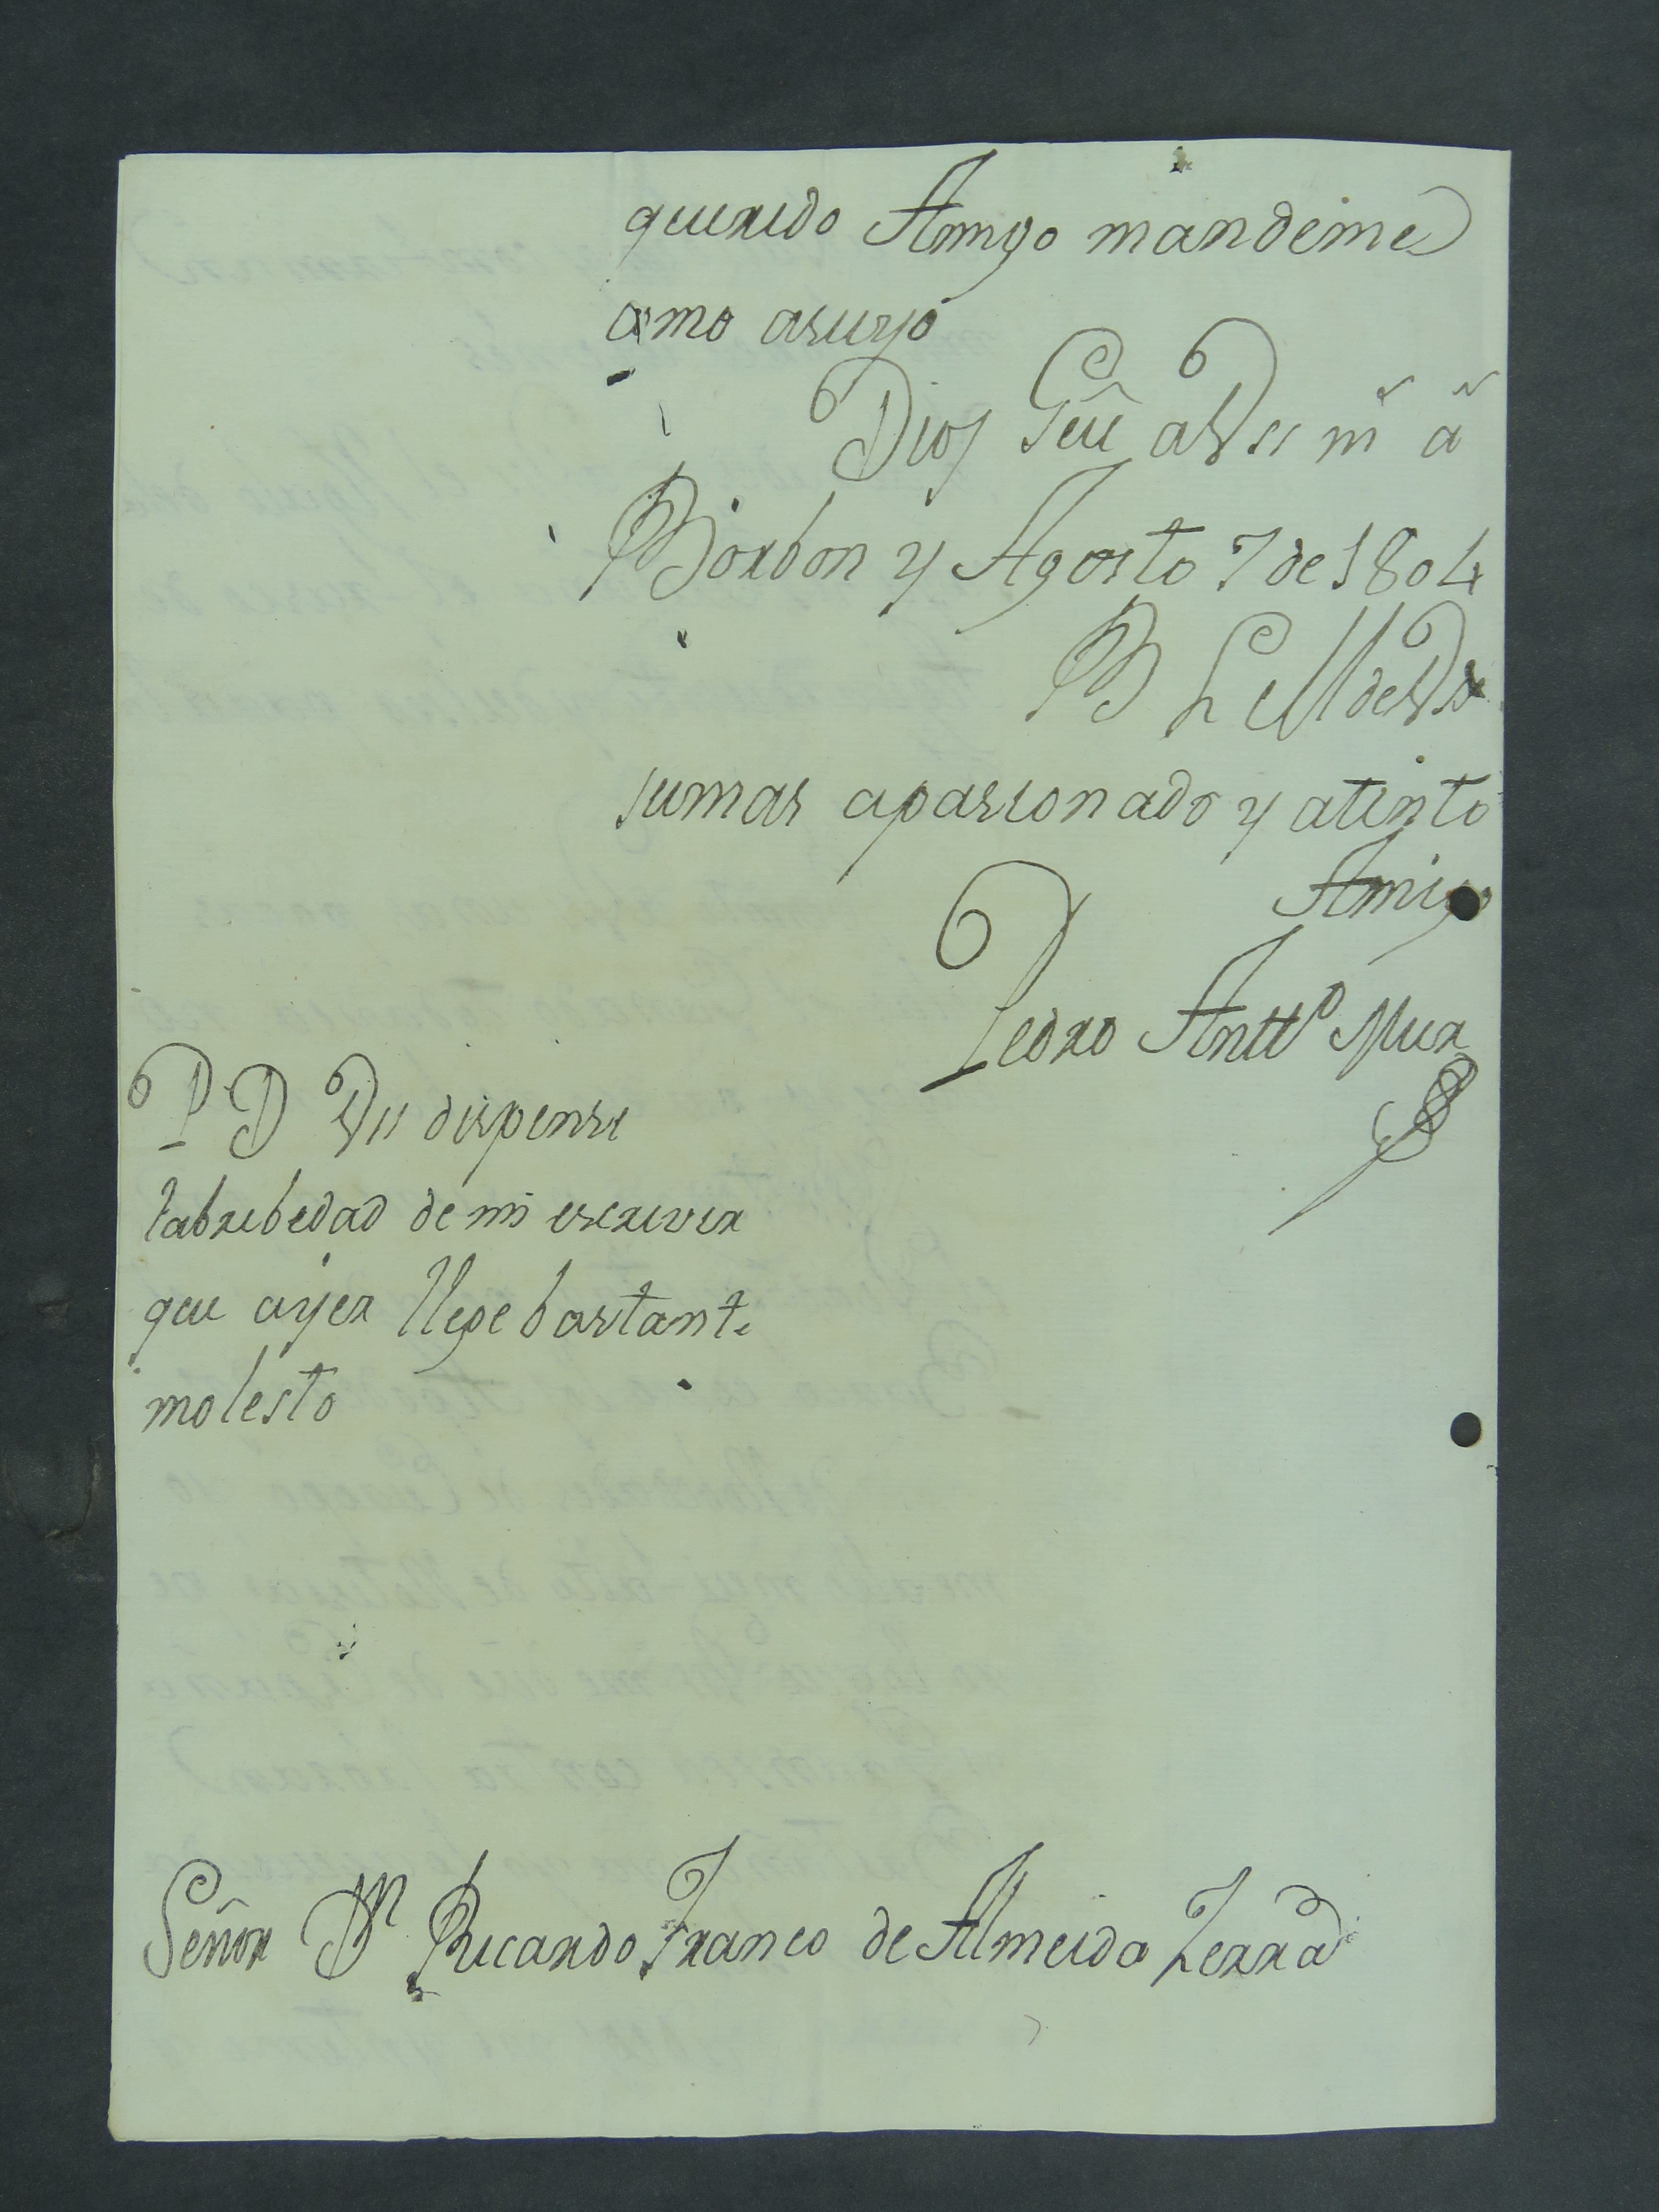 querido Amigo mandeme
como asuyo
Dios Gûe aVss m̃ ã
Borbon y Agosto 7 de 1804
B L M deVss
sumas apassionado y atento
Amigo
Pedro Antt⁰ Mur
P D Vss dispense
labrebedad de mi escrivir
que ayer llege bastante
molesto
Señor Dⁿ Ricardo Franco de Almeida Serra